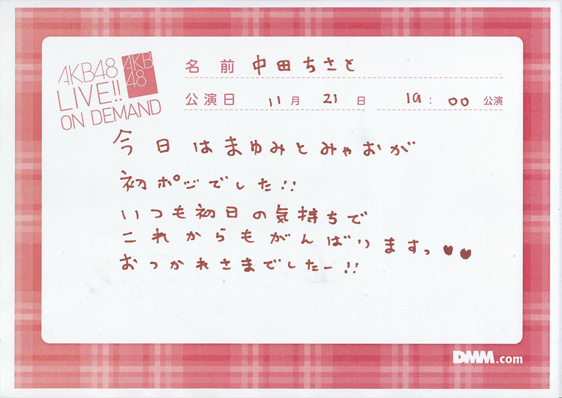 AKB48
LIVE!!
ON DEMAND
AKB
48
名前 中田ちさと
公演日 11月 21日 19:00 公演
今日はまゆみとみゃおが
初ポジでした!!
いつも初日の気持ちで
これからもがんばりますっ♥♥
おつかれさまでしたー!!
DMM.com